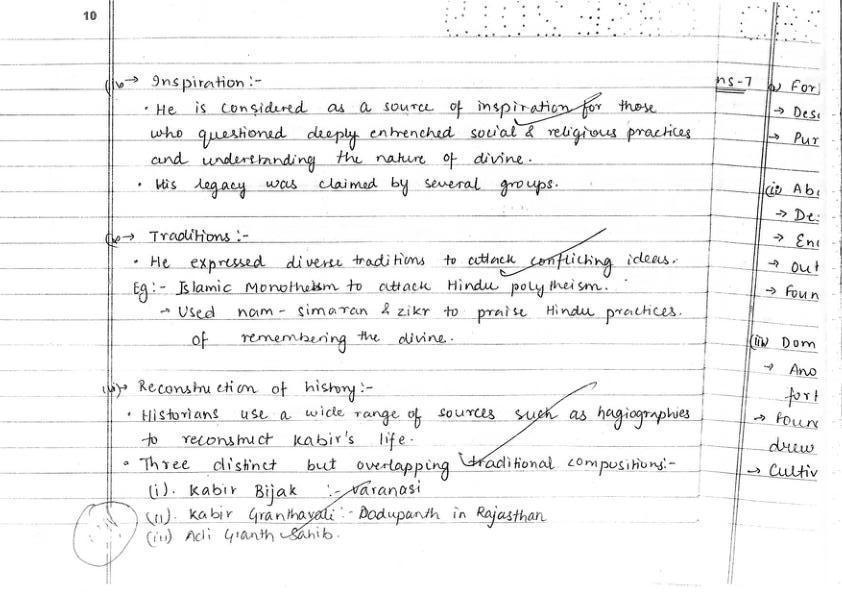 10
(iv)→ Inspiration:-
• He is considered as a source of inspiration for those
who questioned deeply entrenched social & religious practices
and understanding the nature of divine.
• His legacy was claimed by several groups.
→ Traditions:-
• He expressed diverse traditions to attack conflicting ideas.
Eg:- Islamic Monotheism to attack Hindu polytheism.
→ Used nam-simaran & zikr to praise Hindu practices.
of remembering the divine.
→ Reconstruction of history:-
• Historians use a wide range of sources such as hagiographies
to reconstruct Kabir's life.
• Three distinct but overlapping traditional compositions:-
(i). Kabir Bijak :- Varanasi
(ii). Kabir Granthavali:- Dadupanth in Rajasthan
(iii) Adi Granth Sahib.
ns-7
For
→ Des
→ Pur
(ii) Ab
→ De
→ En
→ Out
→ Foun
(iii) Dom
→ Ano
fort
→ Foun
drew
→ Cultiv